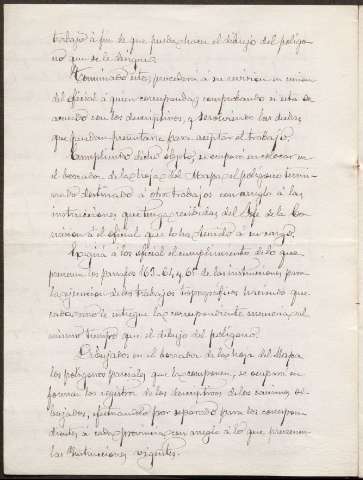 trabajo á fin de que pueda hacer el dibujo del polígo-
no que se le designe.
Terminado este, procederá á su revision en union
del oficial á quien corresponda, comprobando si está de
acuerdo con los descriptivos, y resolviendo las dudas
que puedan presentarse para aceptar el trabajo.
Cumplimentado dicho objeto, se ocupará en colocar en
el borrador de la hoja del Mapa, el polígono termi-
nado destinando á otro trabajos con arreglo á las
instrucciones que tenga recibidas del Jefe de la Co-
mision ó el oficial que lo ha tenido á su cargo.
Exigirá á los oficial el cumplimiento de lo que
previenen los parrafos 163-64 y 65 de las instrucciones para
la ejecucion de los trabajos topográficos haciendo que
cada uno le entregue la correspondiente memoria, al
mismo tiempo que el dibujo del polígono.
Dibujados en el borrador de la hoja del Mapa
los polígonos parciales que la componen, se ocupará en
formar los registros de los descriptivos de los caminos di-
bujados, efectuandolo por separado para los correspon-
dientes á cada provincia con arreglo á lo que previenen
las Instrucciones vigentes.